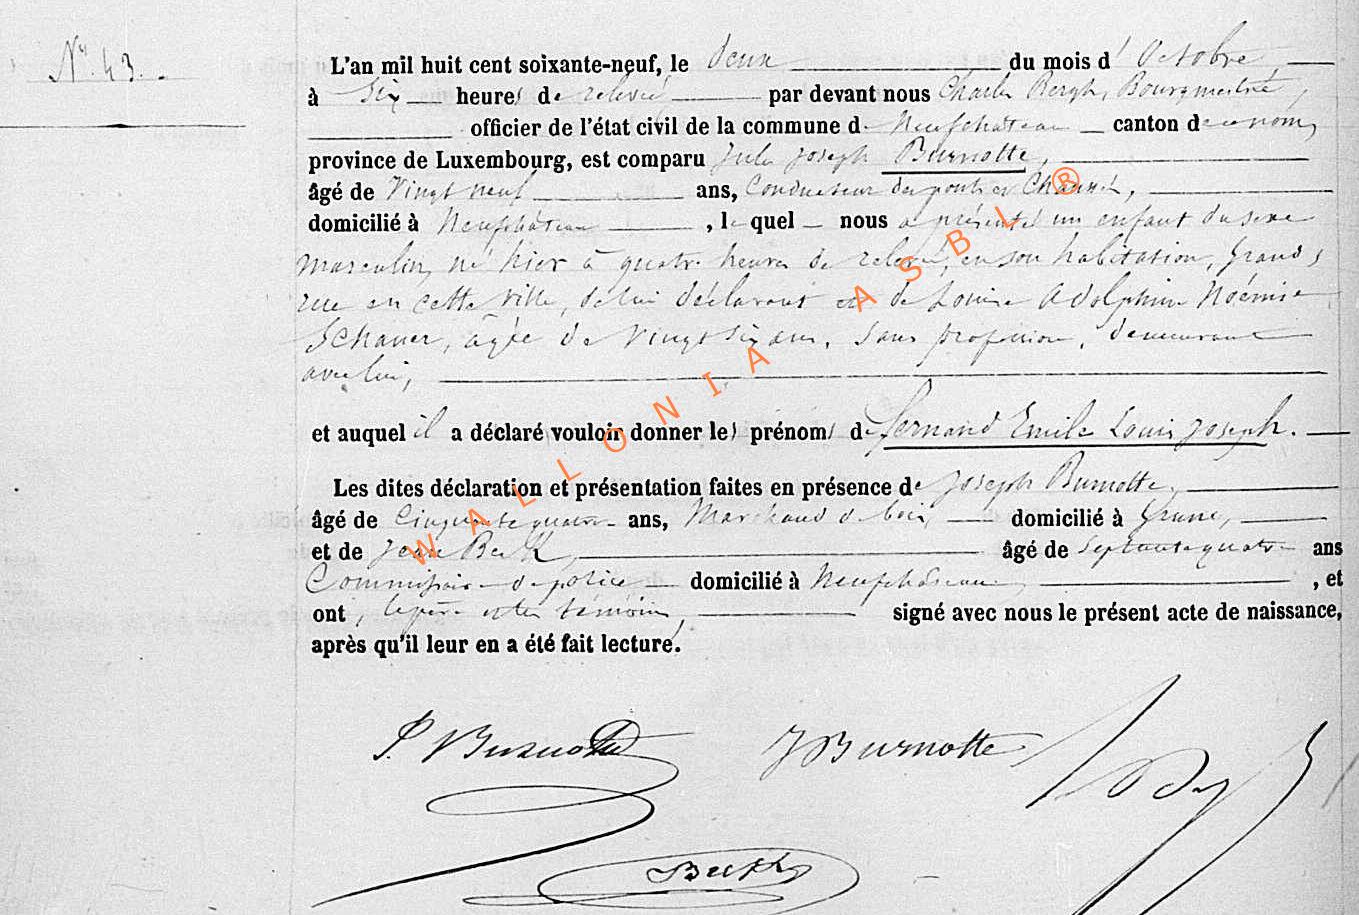 N° 43.
L'an mil huit cent soixante-neuf, le deux du mois d' Octobre
à six heures de relevée par devant nous Charles Bergh, Bourgmestre,
officier de l'état civil de la commune de Neufchâteau canton de ce nom,
province de Luxembourg, est comparu Jules Joseph Burnotte,
âgé de Vingt neuf ans, Conducteur des ponts et Chaussées,
domicilié à Neufchâteau, lequel nous a présenté un enfant du sexe
masculin, né hier à quatre heures de relevée, en son habitation, Grand,
rue en cette ville, de lui déclarant et de Louise Adolphine Noémie
Schauer, âgée de Vingt six ans, sans profession, demeurant
avec lui,
et auquel il a déclaré vouloir donner les prénoms de Fernand Emile Louis Joseph.
Les dites déclaration et présentation faites en présence de Joseph Burnotte,
âgé de Cinquante quatre ans, Marchand de bois, domicilié à Grune,
et de Jean Beckh, âgé de Septante quatre ans
Commissaire de police domicilié à Neufchâteau, et
ont, le père et les témoins, signé avec nous le présent acte de naissance,
après qu'il leur en a été fait lecture.
J. Burnotte JBurnotte
WALLONIA ASBL ®